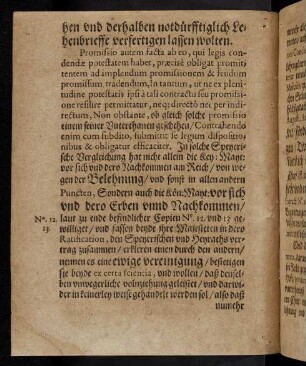 hen vnd derhalben notdürfftiglich Le-
henbrieffe verfertigen lassen wolten.
Promissio autem facta ab eo, qui legis con-
dendæ potestatem habet, præcisè obligat promit-
tentem ad implendum promissionem & feudum
promissum tradendum, In tantum, ut nec ex pleni-
tudine potestatis ipsi à tali contractu seu promissi-
one resilire permittatur, neq; directò nec per indi-
rectum, Non obstante, ob gleich solche promissio
einem seiner Vnterthanen geschehen, Contrahendo
enim cum subdato, submittit se legum dispositio-
nibus & obligatur efficaciter. In solche Speyeri-
sche Vergleichung hat nicht allein die Key: Mayt:
vor sich vnd dero Nachkommen am Reich, von we-
gen der Belehnung, vnd sonst in allen andern
Puncten, Sondern auch die Kön: Mayt: vor sich
vnd dero Erben vnnd Nachkommen,
Nu. 12. laut zu ende befindlicher Copien No. 12. vnd 13 ge-
13. williget, vnd lassen beyde ihre Majesteten in dero
Ratification, den Speyerischen vnd Heyrathsver-
trag zusammen, erkleren einen durch den andern,
nemen es eine ewige vereinigung, bestetigen
sie beyde ex certa scientia, vnd wollen, daß densel-
ben vnwegerliche volnziehung geleistet, vnd darwi-
der in keinerley weise gehandelt werden sol, also daß
nunmehr